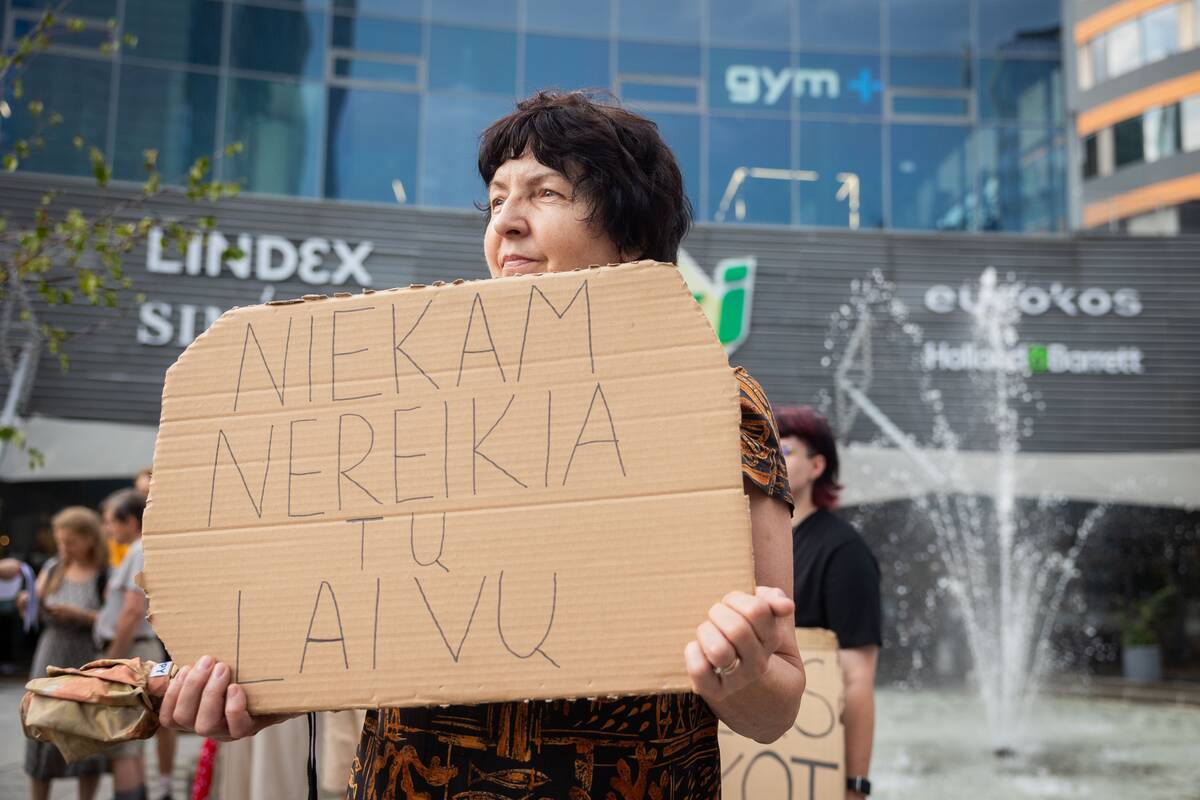 gym+
LINDEX
eurokos
Holland & Barrett
NIEKAM
NEREIKIA
TŲ
LAIVŲ